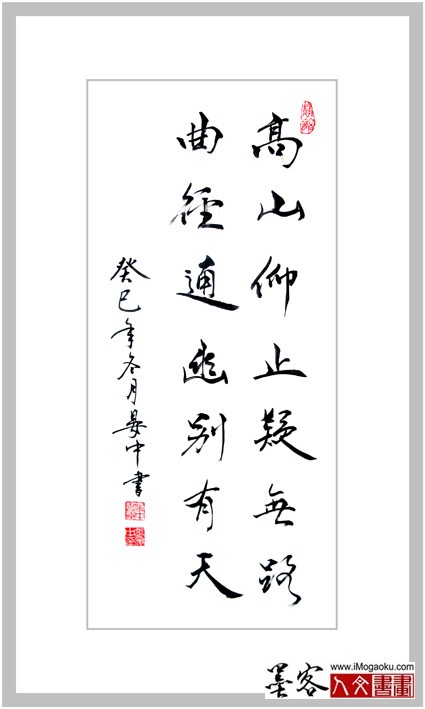 高山仰止疑無路
曲徑通幽别有天
癸巳年冬月晏中書
墨客
www.iMogaoku.com
人文書畫